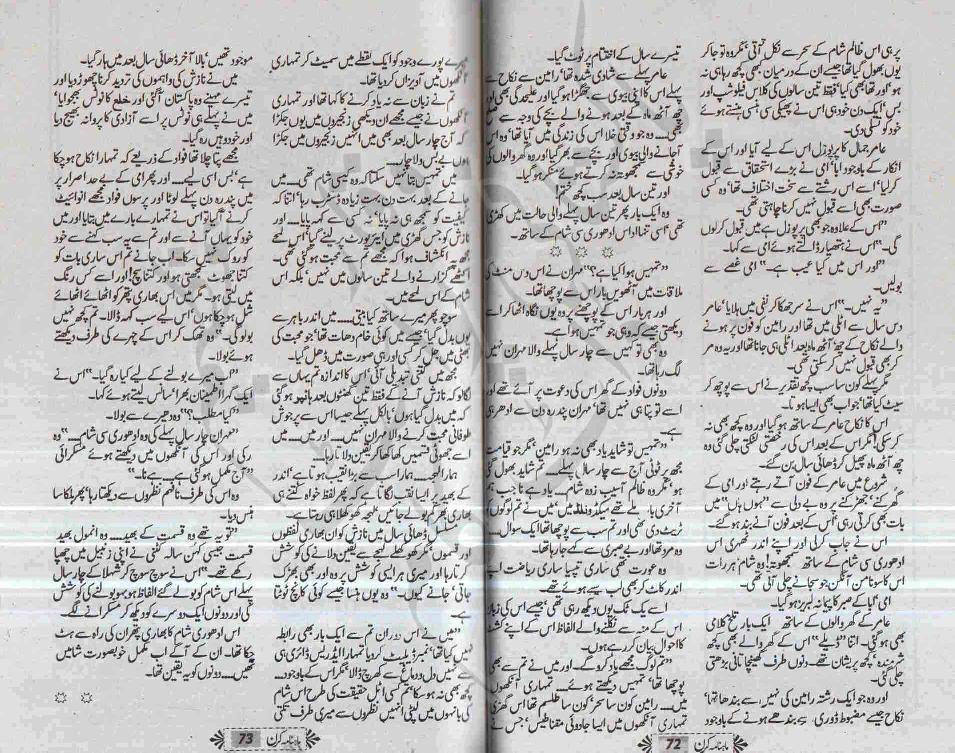 پر ہی اس ظالم شام کے سحر سے نکل آتی‘ مگر وہ تو جا کر
یوں بھول گیا تھا جیسے ان کے درمیان کبھی کچھ رہا ہی نہ
ہو‘ اور تھا بھی کیا‘ فقط تین سالوں کی کلاس فیلوشپ اور
بس‘ ایک دن خود ہی اس نے پھیکی سی ہنسی ہنستے ہوئے
خود کو تسلی دی۔
عامر جمال کا پرپوزل اس کے لیے آیا اور اس کے
انکار کے باوجود ابا‘ امی نے بڑے استحقاق سے قبول
کر لیا‘ اسے اس رشتے سے سخت اختلاف تھا‘ وہ کسی
صورت بھی اسے قبول نہیں کرنا چاہتی تھی۔
”اس کے علاوہ جو بھی پرپوزل ہے میں قبول کر لوں
گی۔“ اس نے ہتھیار ڈالتے ہوئے امی سے کہا۔
”اور اس میں کیا عیب ہے۔“ امی غصے سے
بولیں۔
”یہ نہیں۔“ اس نے سر جھکا کر نفی میں ہلایا‘ عامر
دس سال سے اٹلی میں تھا اور رامین کو فون پر ہونے
والے نکاح کے چھ‘ آٹھ ماہ بعد اٹلی ہی جانا تھا اور یہ وہ مر
کر بھی قبول نہیں کر سکتی تھی۔
مگر پہلے کون سا سب کچھ تقدیر نے اس سے پوچھ کر
سیٹ کیا تھا‘ جو اب بھی ایسا ہوتا۔
اس کا نکاح عامر کے ساتھ ہو گیا اور وہ کچھ بھی نہ
کر سکی‘ مگر اس کے بعد اس کی رخصتی لٹکتی چلی گئی وہ
چھ آٹھ ماہ پھیل کر ڈھائی سال بن گئے۔
شروع میں عامر کے فون آتے رہے اور امی کے
گھرکنے‘ جھڑکنے پر وہ بے دلی سے ”ہوں ہاں“ میں
بات بھی کرتی رہی‘ اس کے بعد فون آنے بند ہو گئے۔
اس نے جاب کر لی اور اپنے اندر ٹھہری اس
ادھوری سی شام کے ساتھ سمجھوتا‘ وہ شام ہر رات
اس کا سونا من آنگن جو سجانے چلی آتی تھی۔
امی‘ ابا کے صبر کا پیمانہ لبریز ہو گیا۔
عامر کے گھر والوں کے ساتھ ایک بار تلخ کلامی
بھی ہو گئی۔ اتنا ”ڈیلے“ اس کے گھر والے بھی کچھ
شرمندہ‘ کچھ پریشان تھے۔ دنوں طرف کھینچا تانی بڑھتی
چلی گئی۔
اور وہ جو ایک رشتہ رامین کی نہیں سے بندھا تھا‘
نکاح جیسے مضبوط ڈوری سے بندھے ہونے کے باوجود
تیسرے سال کے اختتام پر ٹوٹ گیا۔
عامر پہلے سے شادی شدہ تھا‘ رامین سے نکاح سے
پہلے اس کا اپنی بیوی سے جھگڑا ہو گیا اور علیحدگی بھی اور
چھ آٹھ ماہ کے بعد ہونے والے بچے کی وجہ سے صلح
بھی.... وہ جو وقتی خلا اس کی زندگی میں آیا تھا‘ وہ اس
آجانے والی بیوی اور بچے سے بھر گیا اور وہ گھر والوں کی
خوشی سے سمجھوتہ نہ کرتے ہوئے‘ منکر ہو گیا۔
اور تین سال بعد سب کچھ ختم!
وہ ایک بار پھر تین سال پہلے والی حالت میں کھڑی
تھی‘ اسی تنہا اداس ادھوری سی شام کے ساتھ۔
☼ ☼ ☼
”تمہیں ہوا کیا ہے؟“ مہران نے اس دس منٹ کی
ملاقات میں آٹھویں بار اس سے پوچھا تھا۔
اور ہر بار اس کے پوچھنے پر وہ یوں نگاہ اٹھا کر اسے
دیکھتی جیسے کہہ رہی ہو‘ تمہیں نہیں ہوا ہے۔
وہ بھی تو نہیں سے چار سال پہلے والا مہران نہیں
لگ رہا تھا۔
دونوں فواد کے گھر اس کی دعوت پر آئے تھے اور
اسے پتا ہی نہیں تھا‘ مہران پندرہ دن سے ادھر ہی
ہے۔
”تمہیں تو شاید یاد بھی نہ ہو رامین‘ مگر جو قیامت
مجھ پر ٹوٹی آج سے چار سال پہلے.... تم شاید بھول گئی
ہو‘ مگر وہ ظالم آسیب زدہ شام.... یاد ہے نا جب ہم
آخری بار ملے تھے سیکنڈ ونڈ میں‘ میں نے تم لوگوں کو
ٹریٹ دی تھی اور تم سب سے پوچھا تھا ایک سوال....“
وہ مرد تھا اور بے صبری سے کہے جا رہا تھا۔
وہ عورت تھی ساری تپسیا ساری ریاضت اپنے
اندر کاٹ کر بھی لب سے ہوئے تھی۔
اسے یک ٹک یوں دیکھ رہی تھی‘ جیسے اس کی زبان
اس کے منہ سے نکلنے والے الفاظ اس کے اپنے کشٹ
کا احوال بیان کر رہے ہوں۔
”تم لوگ مجھے یاد کرو گے۔ اور میں نے تم سے بھی
پوچھا تھا‘ تمہیں دیکھتے ہوئے.... تمہاری آنکھوں
میں.... رامین کون سا سحر‘ کون سا طلسم تھا اس گھڑی
تمہاری آنکھوں میں ایسا جادوئی مقناطیس‘ جس نے
ماہنامہ کرن 72
میرے پورے وجود کو ایک لقطے میں سمیٹ کر تمہاری
آنکھوں میں آویزاں کر دیا تھا۔
تم نے زبان سے نہ یاد کرنے کا کہا تھا اور تمہاری
آنکھوں نے جیسے مجھے ان دیکھی زنجیروں میں یوں جکڑا
کہ آج چار سال بعد بھی میں انہیں زنجیروں میں جکڑا
ہوں بے بس ولاچار....
میں تمہیں بتا نہیں سکتا کہ وہ کیسی شام تھی.... میں
جانے کے بعد‘ بہت دن‘ بہت زیادہ ڈسٹرب رہا‘ اتنا کہ
کیفیت کو سمجھ ہی نہ پایا‘ نہ کسی سے کہہ پایا.... اور
نازش کو جس گھڑی میں ایئرپورٹ پر لینے گیا‘ اس لمحے
مجھ پہ انکشاف ہوا کہ مجھے تم سے محبت ہو گئی تھی۔
اکٹھے گزارنے والے تین سالوں میں نہیں‘ بلکہ اس
شام کے اس لمحے میں۔
سوچو پھر میرے ساتھ کیا بیتی.... میں اندر باہر سے
یوں بدل گیا‘ جیسے میں کوئی خام دھات تھا‘ جو محبت کی
بھٹی میں جل کر کسی اور ہی صورت میں ڈھل گیا۔
مجھ میں کتنی تبدیلی آئی‘ اس کا اندازہ تم یہاں سے
لگا لو کہ نازش آنے کے فقط تین گھنٹوں بعد ہانپو ہو گئی
کہ میں بدل گیا ہوں‘ بالکل پہلے جیسا اس سے پرجوش
طوفانی محبت کرنے والا مہران نہیں.... اور میں.... میں
اسے جھوٹی قسمیں کھا کھا کر یقین دلاتا رہا۔
ہمارا لہجہ.... ہمارا سب سے بڑا نقیب ہوتا ہے‘ اندر
کے بھید پر ایسا نقب لگاتا ہے کہ پھر لفظ خواہ کتنے ہی
بھاری بھرکم بولے جائیں‘ لہجہ کھوکھلا ہی رہتا ہے۔
میں ڈھائی سال میں نازش کو ان بھاری لفظوں
اور قسموں‘ مگر کھوکھلے لہجے سے یقین دلانے کی کوشش
کرتا رہا اور میری ہر ایسی کوشش پر وہ اور بھی بھڑک
جاتی‘ جانے کیوں۔“ وہ یوں ہنسا جیسے کوئی کانچ ٹوٹتا
ہے۔
”میں نے اس دوران تم سے ایک بار بھی رابطہ
نہیں کیا تھا‘ نمبر ڈیلیٹ کر دیا تمہارا ایڈریس ڈائری ہی
سے نہیں دل و دماغ سے کھرچ ڈالا‘ مگر اس کے باوجود
کچھ بھی نہ ہو سکا‘ تم کسی اٹل حقیقت کی طرح اس شام
کی بانہوں میں لپٹی انہیں نظروں سے میری طرف تکتی
موجود تھیں‘ بالآخر ڈھائی سال بعد میں ہار گیا۔
میں نے نازش کی واہموں کی تردید کرنا چھوڑ دیا اور
تیسرے مہینے وہ پاکستان آگئی اور خلع کا نوٹس بھجوایا‘
میں نے پہلے ہی نوٹس پر اسے آزادی کا پروانہ بھیج دیا
اور خود وہیں رہ گیا۔
مجھے پتا چلا تھا فواد کے ذریعے کہ تمہارا نکاح ہو چکا
ہے‘ بس اسی لیے.... اور پھر امی کے بے حد اصرار پر
میں پندرہ دن پہلے لوٹا اور پرسوں فواد مجھے انوائیٹ
کرنے آگیا تو اس نے تمہارے بارے میں بتایا اور میں
خود کو یہاں آنے سے اور تم سے یہ سب کہنے سے خود
کو روک نہیں سکا۔ اب جانے تم اس ساری بات کو
کتنا جھوٹ سمجھتی ہو اور کتنا سچ! اور اسے کس رنگ
میں لیتی ہو۔ مگر میں اس بھاری پتھر کو اٹھائے اٹھائے
شل ہو چکا ہوں‘ اس لیے سب کہہ ڈالا۔ تم کچھ نہیں
بولو گی۔“ وہ تھک کر اس کے چہرے کی طرف دیکھتے
ہوئے بولا۔
”اب میرے بولنے کے لیے کیا رہ گیا۔“ اس نے
ایک گہرا اطمینان بھرا سانس لیتے ہوئے کہا۔
”کیا مطلب؟“ وہ دھیرے سے بولا۔
”مہران چار سال پہلے کی وہ ادھوری سی شام....“ وہ
رکی اور اس کی آنکھوں میں دیکھتے ہوئے مسکرائی
”آج مکمل ہو گئی ہے.... ہے نا۔“
وہ اس کی طرف نافہم نظروں سے دیکھتا رہا‘ پھر ہلکا سا
ہنس دیا۔
”تو یہ تھے وہ قسمت کے بھید.... وہ انمول بھید
قسمت جیسی کس سالہ کٹنی نے اپنی زنبیل میں چھپا
رکھے تھے۔“ اس نے سوچ سوچ کر شہلا کے چار سال
پہلے اس شام کو بولے گئے الفاظ ہو بہو بولنے کی کوشش
کی اور دونوں ایک دوسرے کو دیکھ کر مسکرانے لگے۔
اس ادھوری شام کا بھاری پتھر ان کی راہ سے ہٹ
چکا تھا۔ ان کے آگے اب مکمل خوبصورت شامیں
تھیں.... دونوں کو یہ یقین تھا۔
☼ ☼
ماہنامہ کرن 73